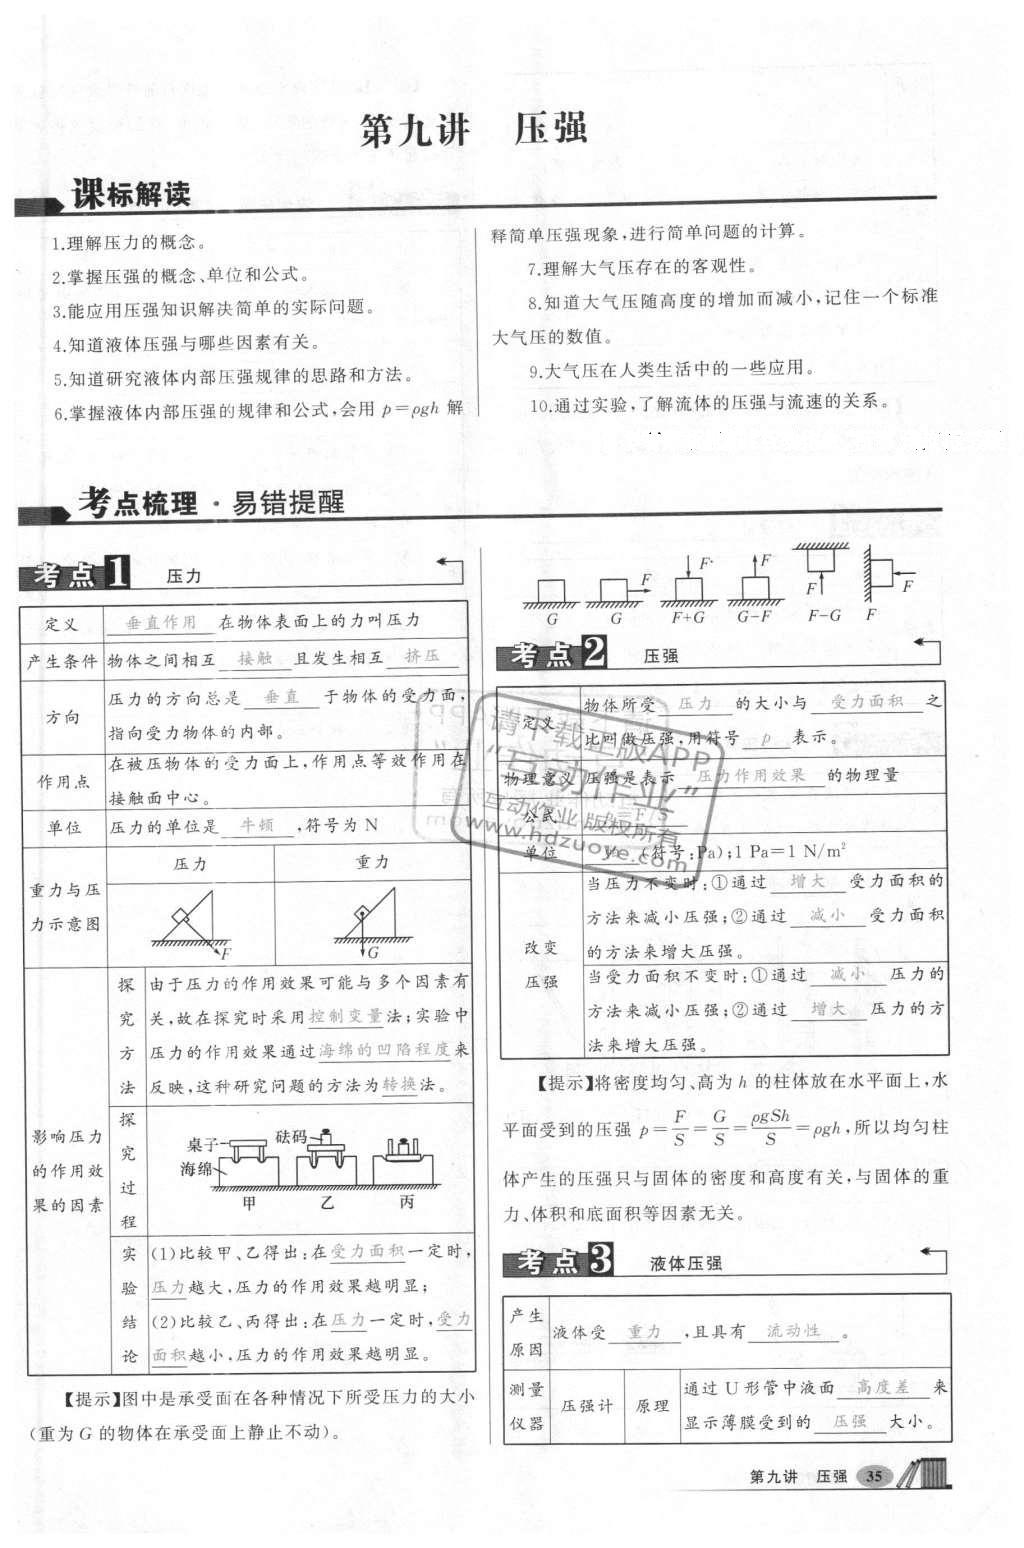 第九讲 压强
课标解读
1.理解压力的概念。
2.掌握压强的概念、单位和公式。
3.能应用压强知识解决简单的实际问题。
4.知道液体压强与哪些因素有关。
5.知道研究液体内部压强规律的思路和方法。
6.掌握液体内部压强的规律和公式,会用 p=ρgh 解
释简单压强现象,进行简单问题的计算。
7.理解大气压存在的客观性。
8.知道大气压随高度的增加而减小,记住一个标准
大气压的数值。
9.大气压在人类生活中的一些应用。
10.通过实验,了解流体的压强与流速的关系。
考点梳理·易错提醒
考点1 压力
定义 垂直作用 在物体表面上的力叫压力
产生条件 物体之间相互 接触 且发生相互 挤压
方向 压力的方向总是 垂直 于物体的受力面,
指向受力物体的内部。
作用点 在被压物体的受力面上,作用点等效作用在
接触面中心。
单位 压力的单位是 牛顿 ,符号为 N
重力与压
力示意图
压力 重力
F G
影响压力
的作用效
果的因素
探究方法
由于压力的作用效果可能与多个因素有
关,故在探究时采用控制变量法;实验中
压力的作用效果通过海绵的凹陷程度来
反映,这种研究问题的方法为转换法。
探究过程
桌子 砝码
海绵
甲 乙 丙
实验结论
(1)比较甲、乙得出:在受力面积一定时,
压力越大,压力的作用效果越明显;
(2)比较乙、丙得出:在压力一定时,受力
面积越小,压力的作用效果越明显。
【提示】图中是承受面在各种情况下所受压力的大小
(重为 G 的物体在承受面上静止不动)。
F F F F F
G G F+G G-F F-G F
考点2 压强
定义 物体所受 压力 的大小与 受力面积 之
比叫做压强,用符号 p 表示。
物理意义 压强是表示 压力作用效果 的物理量
公式 p=F/S
单位 Pa (符号:Pa);1 Pa=1 N/m²
改变
压强
当压力不变时:①通过 增大 受力面积的
方法来减小压强;②通过 减小 受力面积
的方法来增大压强。
当受力面积不变时:①通过 减小 压力的
方法来减小压强;②通过 增大 压力的方
法来增大压强。
【提示】将密度均匀、高为 h 的柱体放在水平面上,水
平面受到的压强 p=F/S=G/S=ρgSh/S=ρgh,所以均匀柱
体产生的压强只与固体的密度和高度有关,与固体的重
力、体积和底面积等因素无关。
考点3 液体压强
产生
原因
液体受 重力 ,且具有 流动性 。
测量
仪器
压强计 原理
通过 U 形管中液面 高度差 来
显示薄膜受到的 压强 大小。
请下载正版APP
“互动作业”
互动作业 版权所有
www.hdzuoye.com
第九讲 压强 35